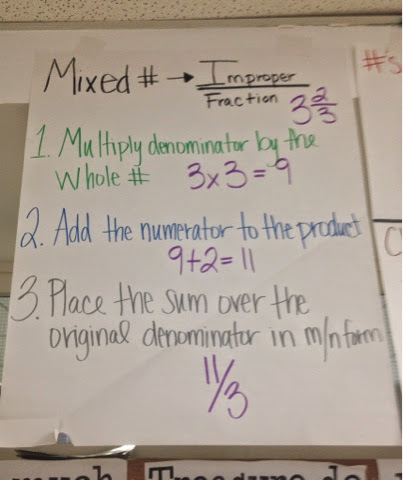 Mixed # → Improper
Fraction 3 2/3
#'s
1. Multiply denominator by the
Whole # 3x3=9
2. Add the numerator to the product
9+2=11
3. Place the sum over the
original denominator in m/n form
11/3